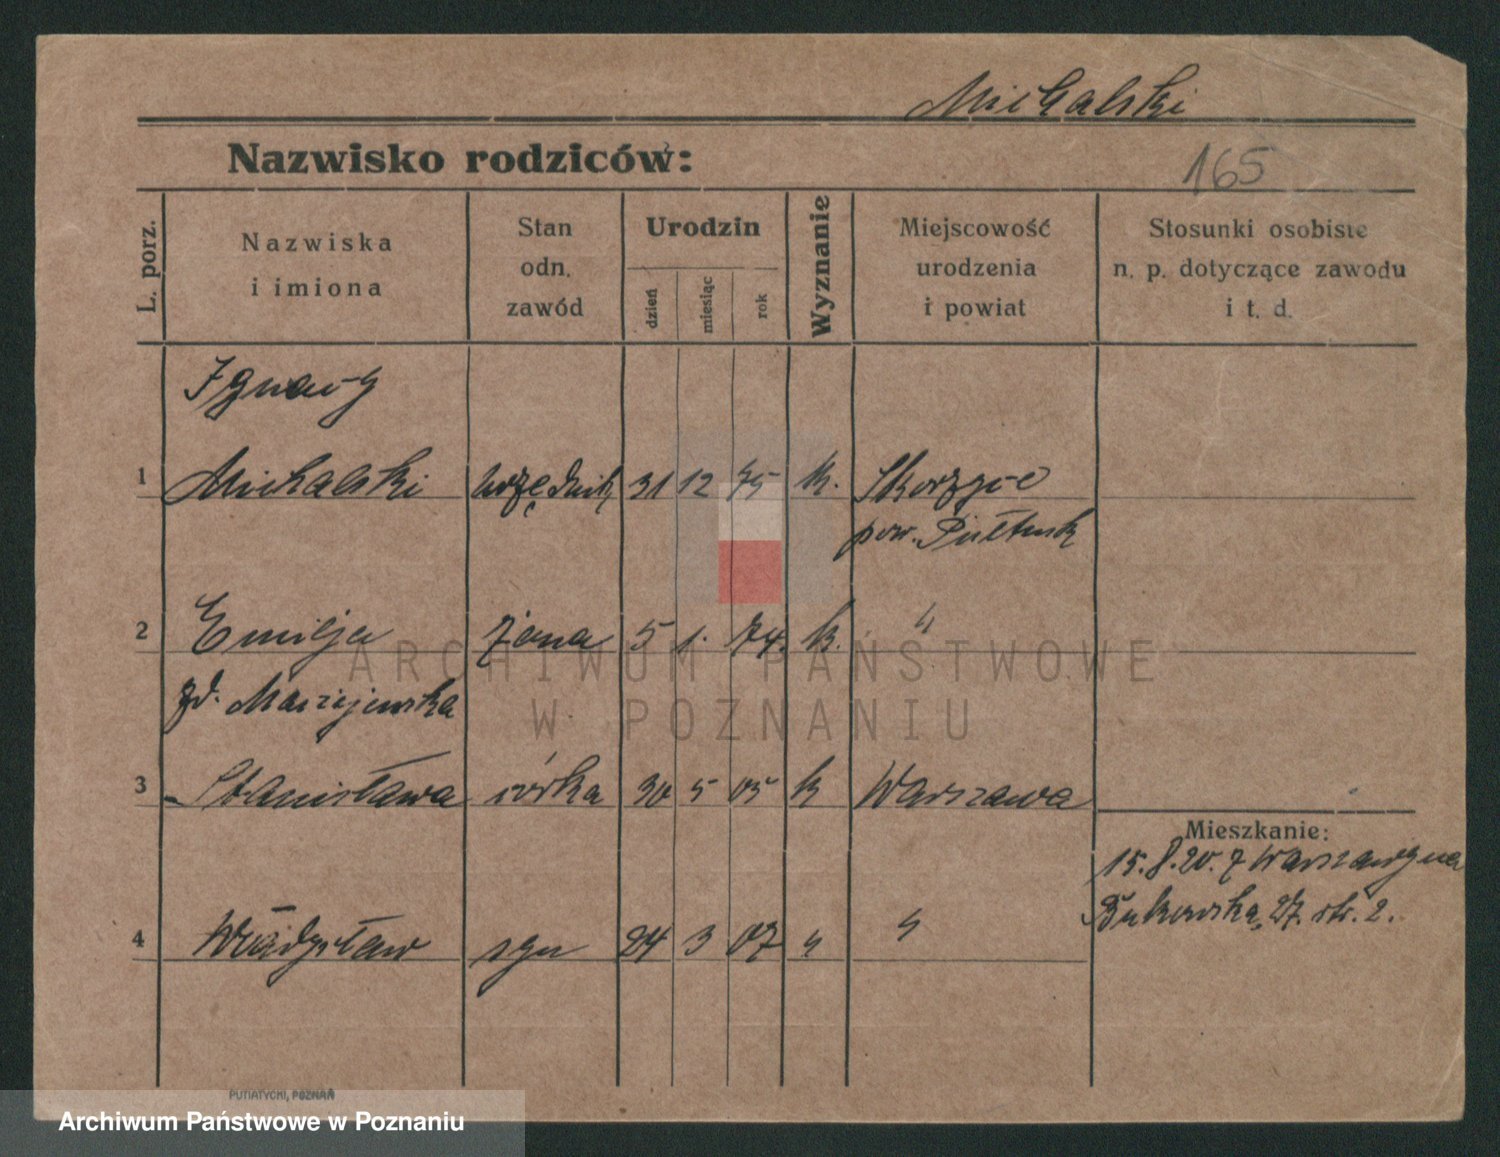 Michalski
Nazwisko rodziców:
165
L. porz.
Nazwiska
i imiona
Stan
odn.
zawód
Urodzin
dzień
miesiąc
rok
Wyznanie
Miejscowość
urodzenia
i powiat
Stosunki osobiste
n. p. dotyczące zawodu
i t. d.
Ignacy
1 Michalski urzędnik 31 12 75 k.
pow. Pułtusk
2 Emilja żona 5 1. 74. k. "
zd. Maciejewska
3 Stanisława córka 30 5 05 k Warszawa
Mieszkanie:
15. 8. 20. z Warszawy na
4 Władysław syn 24 3 07 " "
Bukowska 27. str. 2.
PUTIATYCKI, POZNAŃ
ARCHIWUM PAŃSTWOWE
W POZNANIU
Archiwum Państwowe w Poznaniu